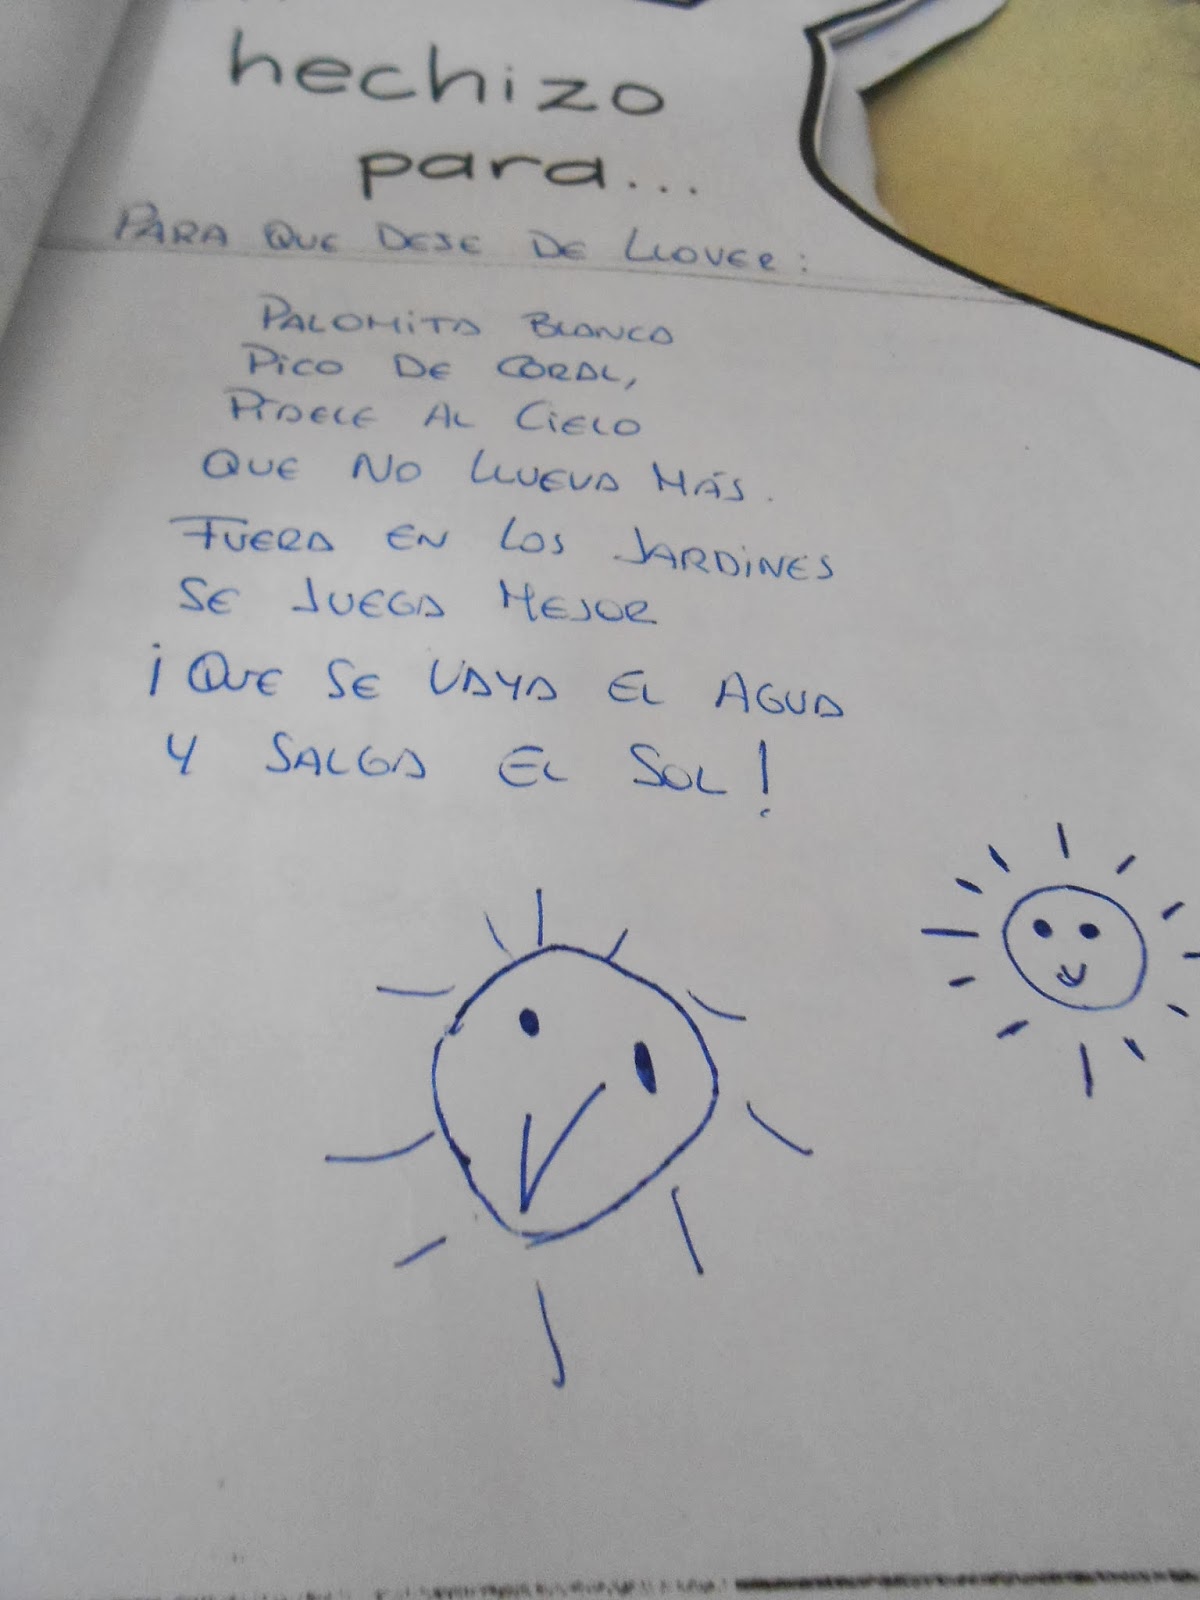 hechizo
para...
PARA QUE DEJE DE LLOVER:
PALOMITA BLANCA
PICO DE CORAL,
PÍDELE AL CIELO
QUE NO LLUEVA MÁS.
FUERA EN LOS JARDINES
SE JUEGA MEJOR
¡QUE SE VAYA EL AGUA
Y SALGA EL SOL!